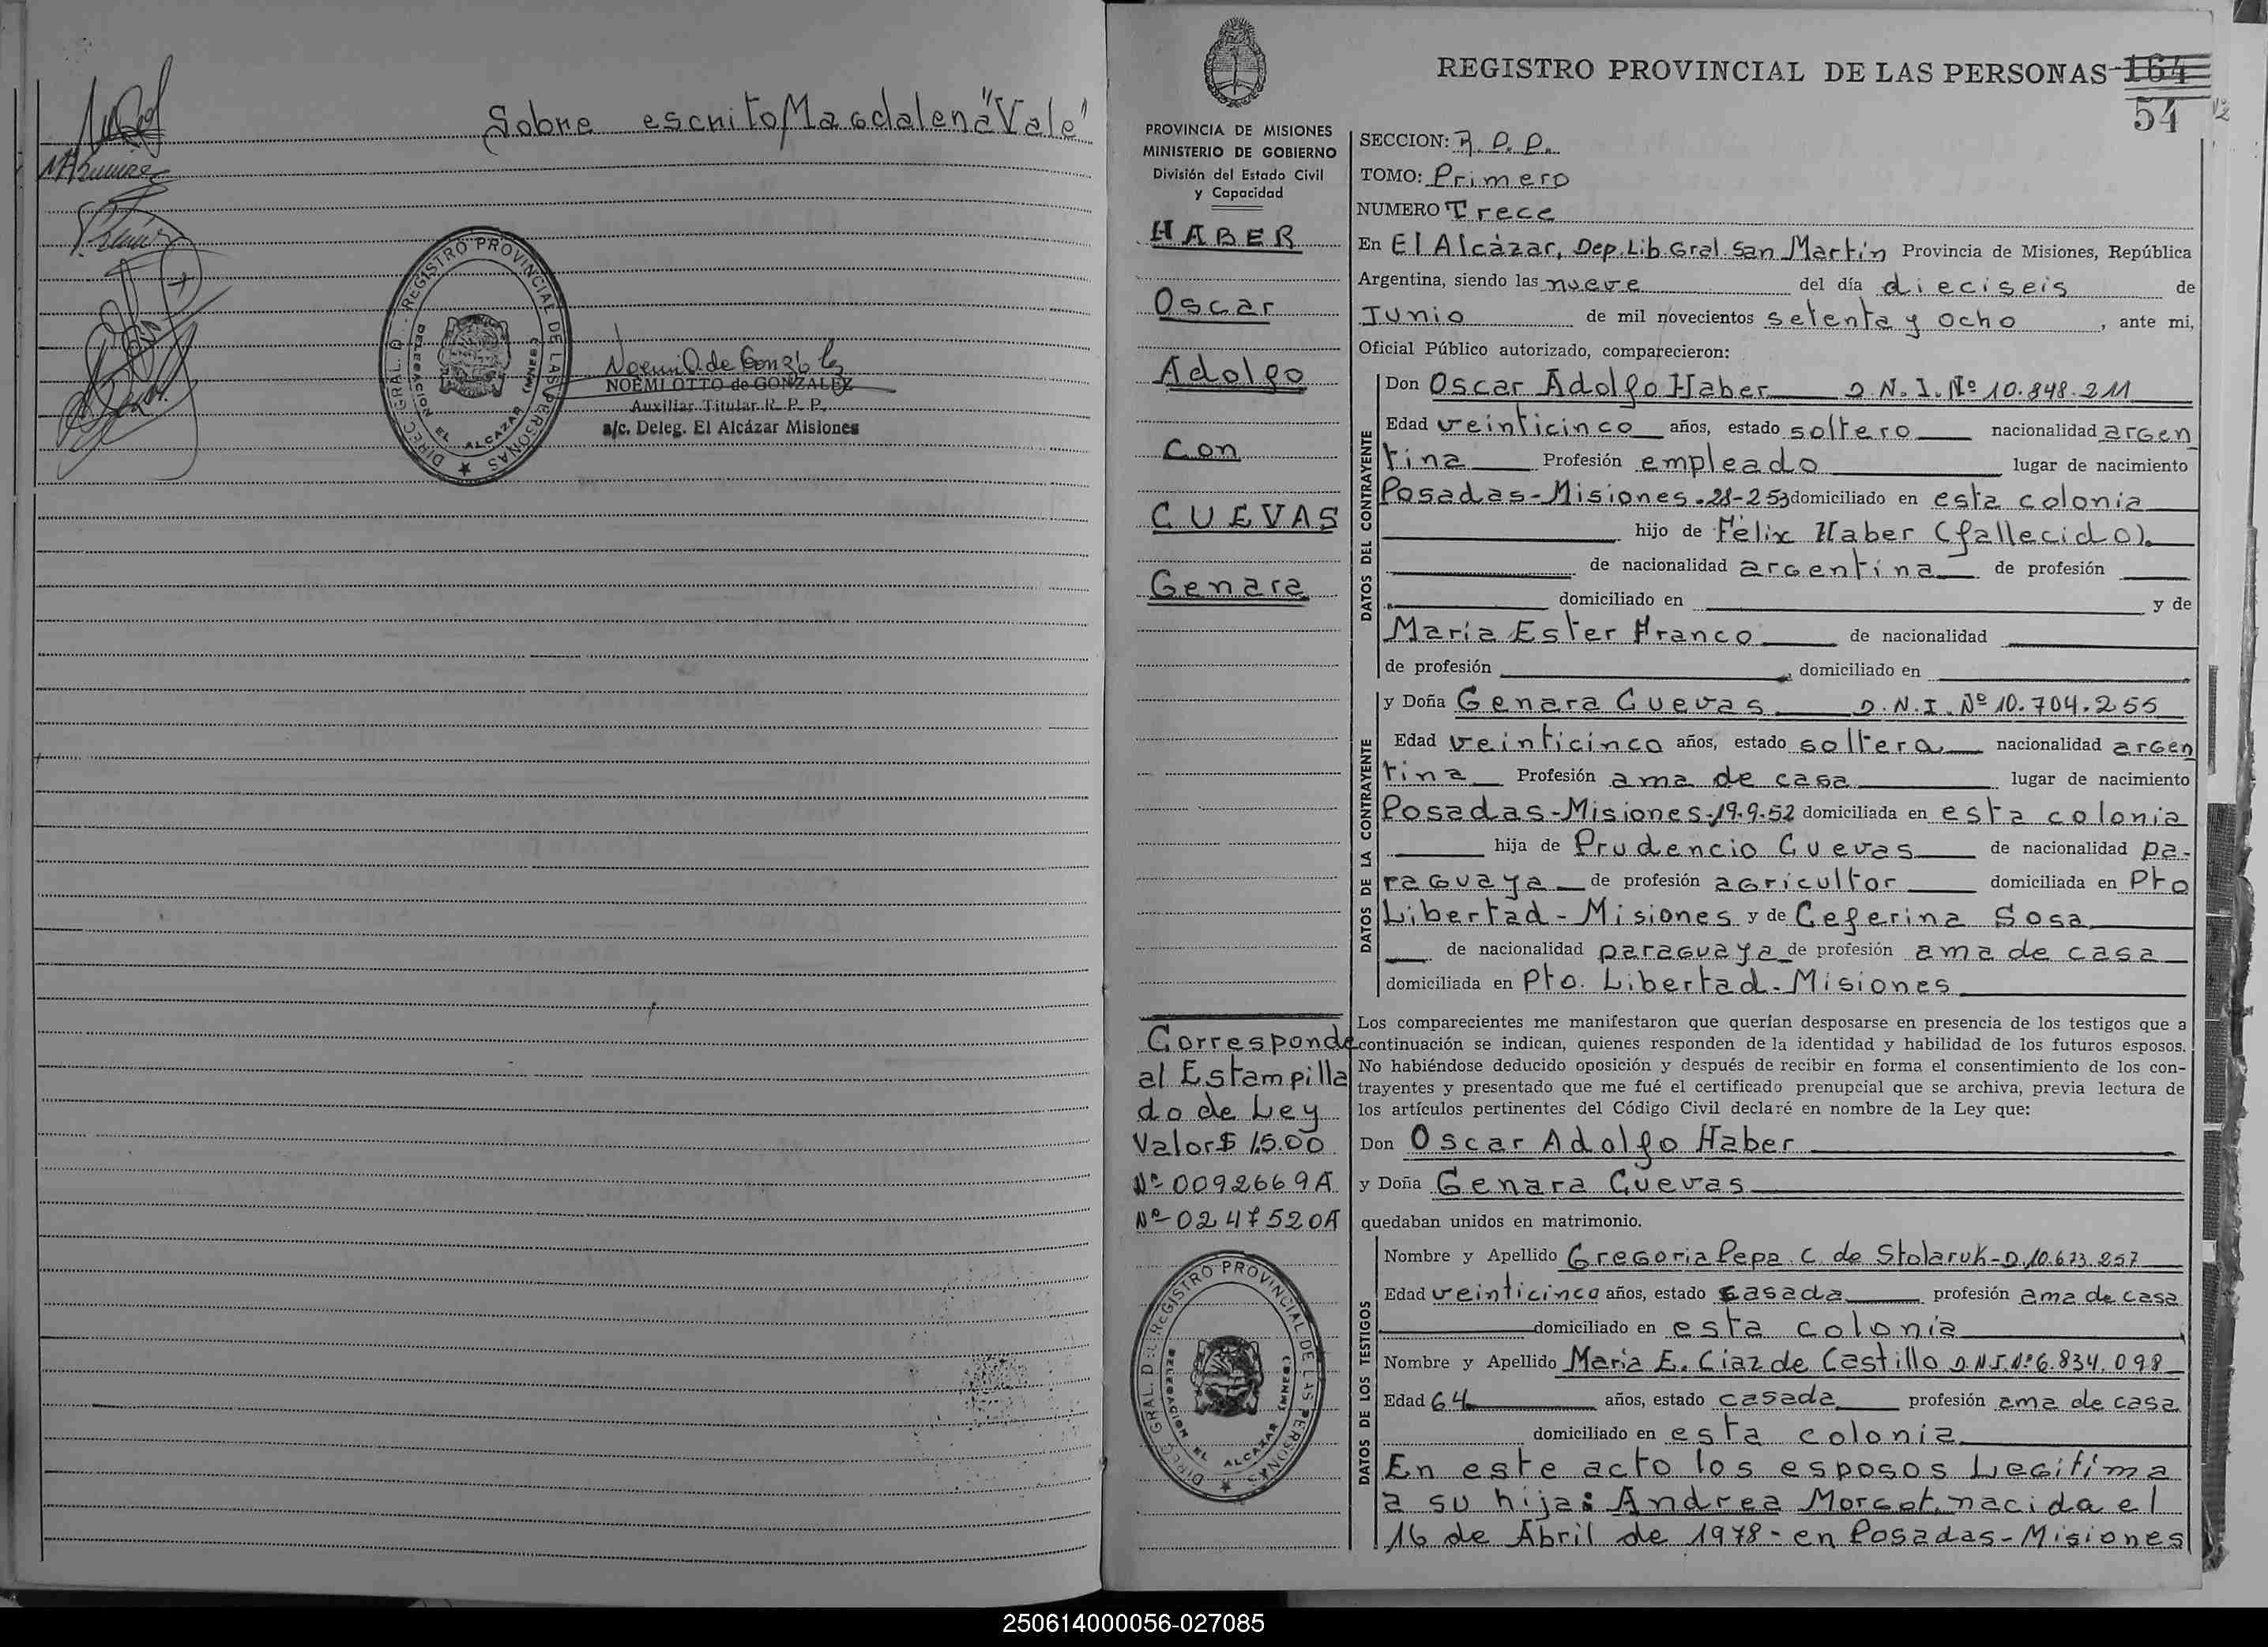 Sobre escrito Magdalena "Vale"
REGISTRO PROVINCIAL DE LAS PERSONAS
DIREC. GRAL. D
DELEGACION
EL ALCAZAR
(MNES)
NOEMI OTTO de GONZALEZ
Auxiliar Titular R. P. P.
a/c. Deleg. El Alcázar Misiones
REGISTRO PROVINCIAL DE LAS PERSONAS 164
54
PROVINCIA DE MISIONES
MINISTERIO DE GOBIERNO
División del Estado Civil
y Capacidad
HABER
Oscar
Adolfo
con
CUEVAS
Genara
Corresponde
al Estampilla
do de Ley
Valor $ 15.00
Nº 0092669A
Nº 0247520A
REGISTRO PROVINCIAL DE LAS PERSONAS
DIREC. GRAL. D
DELEGACION
EL ALCAZAR
(MNES)
SECCION: R. P. P.
TOMO: Primero
NUMERO Trece
En El Alcázar, Dep. Lib. Gral. San Martín Provincia de Misiones, República
Argentina, siendo las nueve del día dieciseis de
Junio de mil novecientos setenta y ocho, ante mi,
Oficial Público autorizado, comparecieron:
DATOS DEL CONTRAYENTE
Don Oscar Adolfo Haber D.N.I. Nº 10.848.211
Edad veinticinco años, estado soltero nacionalidad argen
tina Profesión empleado lugar de nacimiento
Posadas-Misiones domiciliado en esta colonia
hijo de Félix Haber (fallecido).
de nacionalidad argentina de profesión
domiciliado en y de
María Ester Franco de nacionalidad
de profesión domiciliado en
DATOS DE LA CONTRAYENTE
y Doña Genara Cuevas D.N.I. Nº 10.704.255
Edad veinticinco años, estado soltera nacionalidad argen
tina Profesión ama de casa lugar de nacimiento
Posadas-Misiones-19-9-52 domiciliada en esta colonia
hija de Prudencio Cuevas de nacionalidad pa-
raguaya de profesión agricultor domiciliada en Pto
Libertad - Misiones y de Ceferina Sosa
de nacionalidad paraguaya de profesión ama de casa
domiciliada en Pto. Libertad-Misiones
Los comparecientes me manifestaron que querían desposarse en presencia de los testigos que a
continuación se indican, quienes responden de la identidad y habilidad de los futuros esposos.
No habiéndose deducido oposición y después de recibir en forma el consentimiento de los con-
trayentes y presentado que me fué el certificado prenupcial que se archiva, previa lectura de
los artículos pertinentes del Código Civil declaré en nombre de la Ley que:
Don Oscar Adolfo Haber
y Doña Genara Cuevas
quedaban unidos en matrimonio.
DATOS DE LOS TESTIGOS
Nombre y Apellido Gregoria Pepa C. de Stolaruk-D.10.673.257
Edad veinticinco años, estado casada profesión ama de casa
domiciliado en esta colonia
Nombre y Apellido María E. Ciaz de Castillo D.N.I. Nº 6.834.098
Edad 64 años, estado casada profesión ama de casa
domiciliado en esta colonia
En este acto los esposos Legitima
a su hija: Andrea Morgot, nacida el
16 de Abril de 1978- en Posadas-Misiones
250614000056-027085